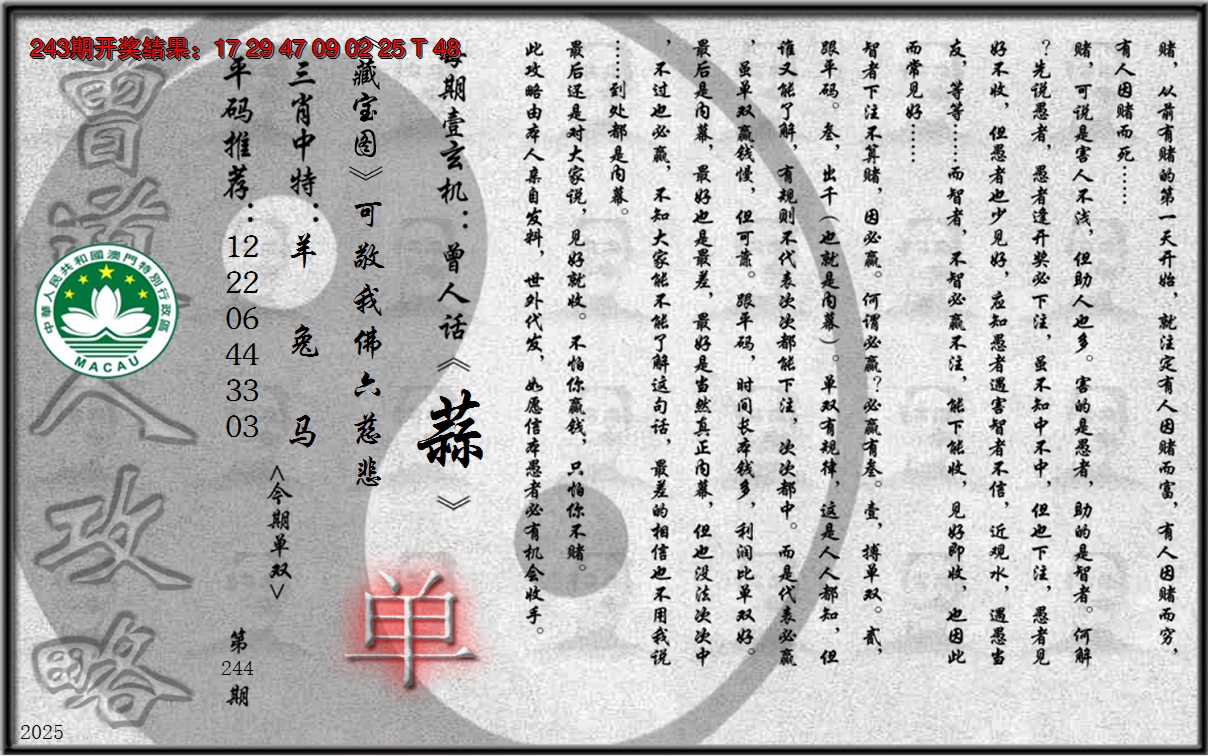 243期开奖结果：17 29 47 09 02 25 T 48
赌，从前有赌的第一天开始，就注定有人因赌而富，有人因赌而穷，
有人因赌而死……
赌，可说是害人不浅，但助人也多。害的是愚者，助的是智者。何解
？先说愚者，愚者逢开奖必下注，虽不知中不中，但也下注，愚者见
好不收，但愚者也少见好，应知愚者遇害智者不信，近观水，遇愚当
友，等等……而智者，不智必赢不注，能下能收，见好即收，也因此
而常见好……
智者下注不算赌，因必赢。何谓必赢？必赢有叁。壹，搏单双。贰，
跟平码。叁，出千（也就是内幕）。单双有规律，这是人人都知，但
谁又能了解，有规则不代表次次都能下注，次次都中。而是代表必赢
，虽单双赢钱慢，但可靠。跟平码，时间长本钱多，利润比单双好。
最后是内幕，最好也是最差，最好是当然真正内幕，但也没法次次中
，不过也必赢，不知大家能不能了解这句话，最差的相信也不用我说
……到处都是内幕。
最后还是对大家说，见好就收。不怕你赢钱，只怕你不赌。
此攻略由本人亲自发料，世外代发，如愿信本愚者必有机会收手。
每期壹玄机：曾人话《蒜》
《藏宝图》可敬我佛六慈悲
单
三肖中特：羊 兔 马
<今期单双>
平码推荐：
12
22
06
44
33
03
第
244
期
曾道人攻略
中華人民共和國澳門特別行政區
MACAU
2025